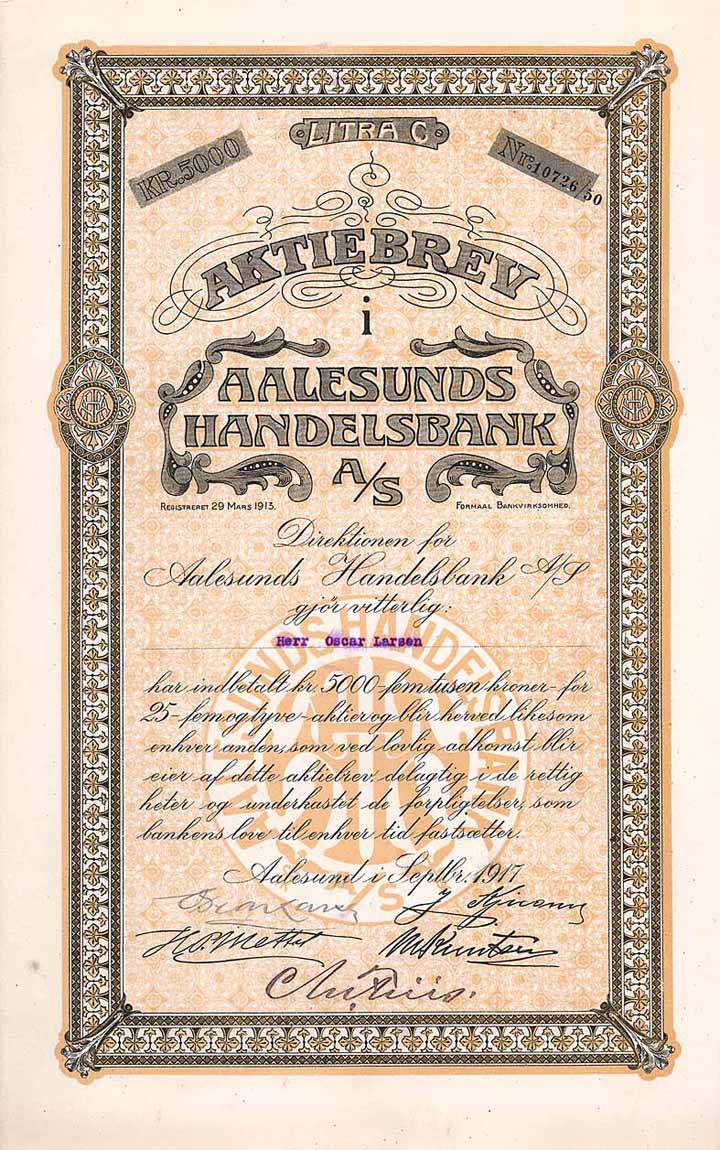 LITRA C
KR. 5000
Nr. 10726/50
AKTIEBREV
i
AALESUNDS
HANDELSBANK
A/S
REGISTRERET 29 MARS 1913.
FORMAAL BANKVIRKSOMHED.
Direktionen for
Aalesunds Handelsbank A/S
gjör vitterlig:
Herr Oscar Larsen
har indbetalt kr. 5000-femtusen kroner-for
25-femogtyve-aktier og blir herved likesom
enhver anden, som ved lovlig adkomst blir
eier af dette aktiebrev, delagtig i de rettig
heter og underkastet de forpligtelser, som
bankens love til enhver tid fastsætter.
Aalesund i Septbr. 1917
AALESUNDS HANDELSBANK A/S